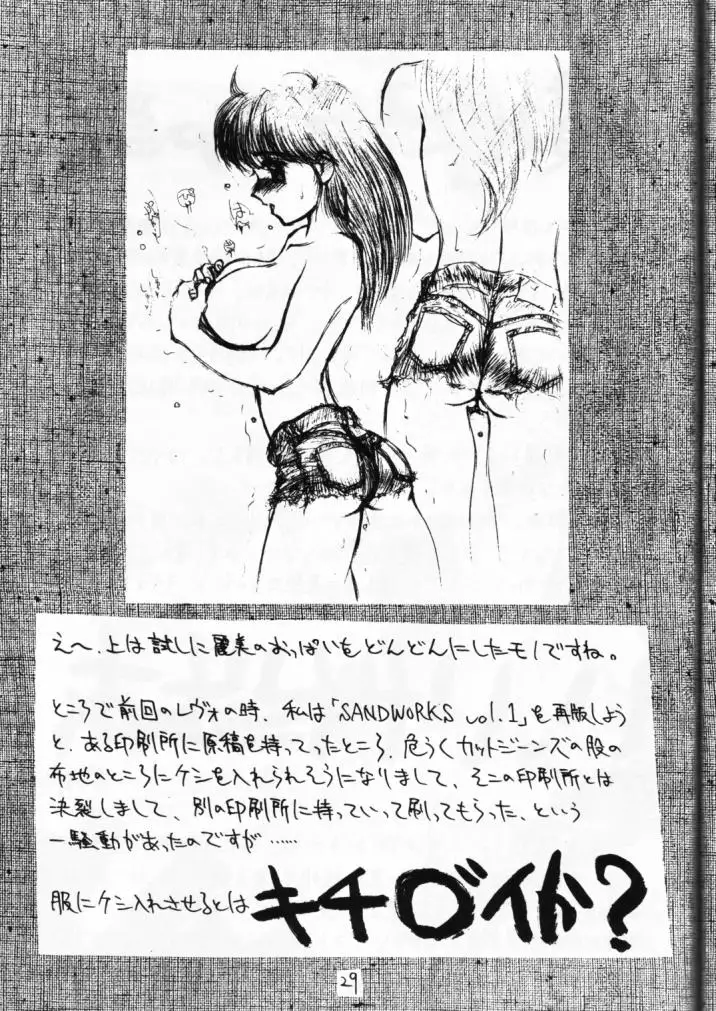 えへ、上は試しに麗美のおっぱいをどんどんにしたモノですね。
ところで前回のレヴォの時、私は「SANDWORKS vol.1」を再版しよう
と、ある印刷所に原稿を持ってったところ、危うくカットジーンズの股の
布地のところにケシを入れられそうになりまして、そこの印刷所とは
決裂しまして、別の印刷所に持っていって刷ってもらった、という
一騒動があったのですが……
服にケシ入れさせるとは キチ○イか?
29